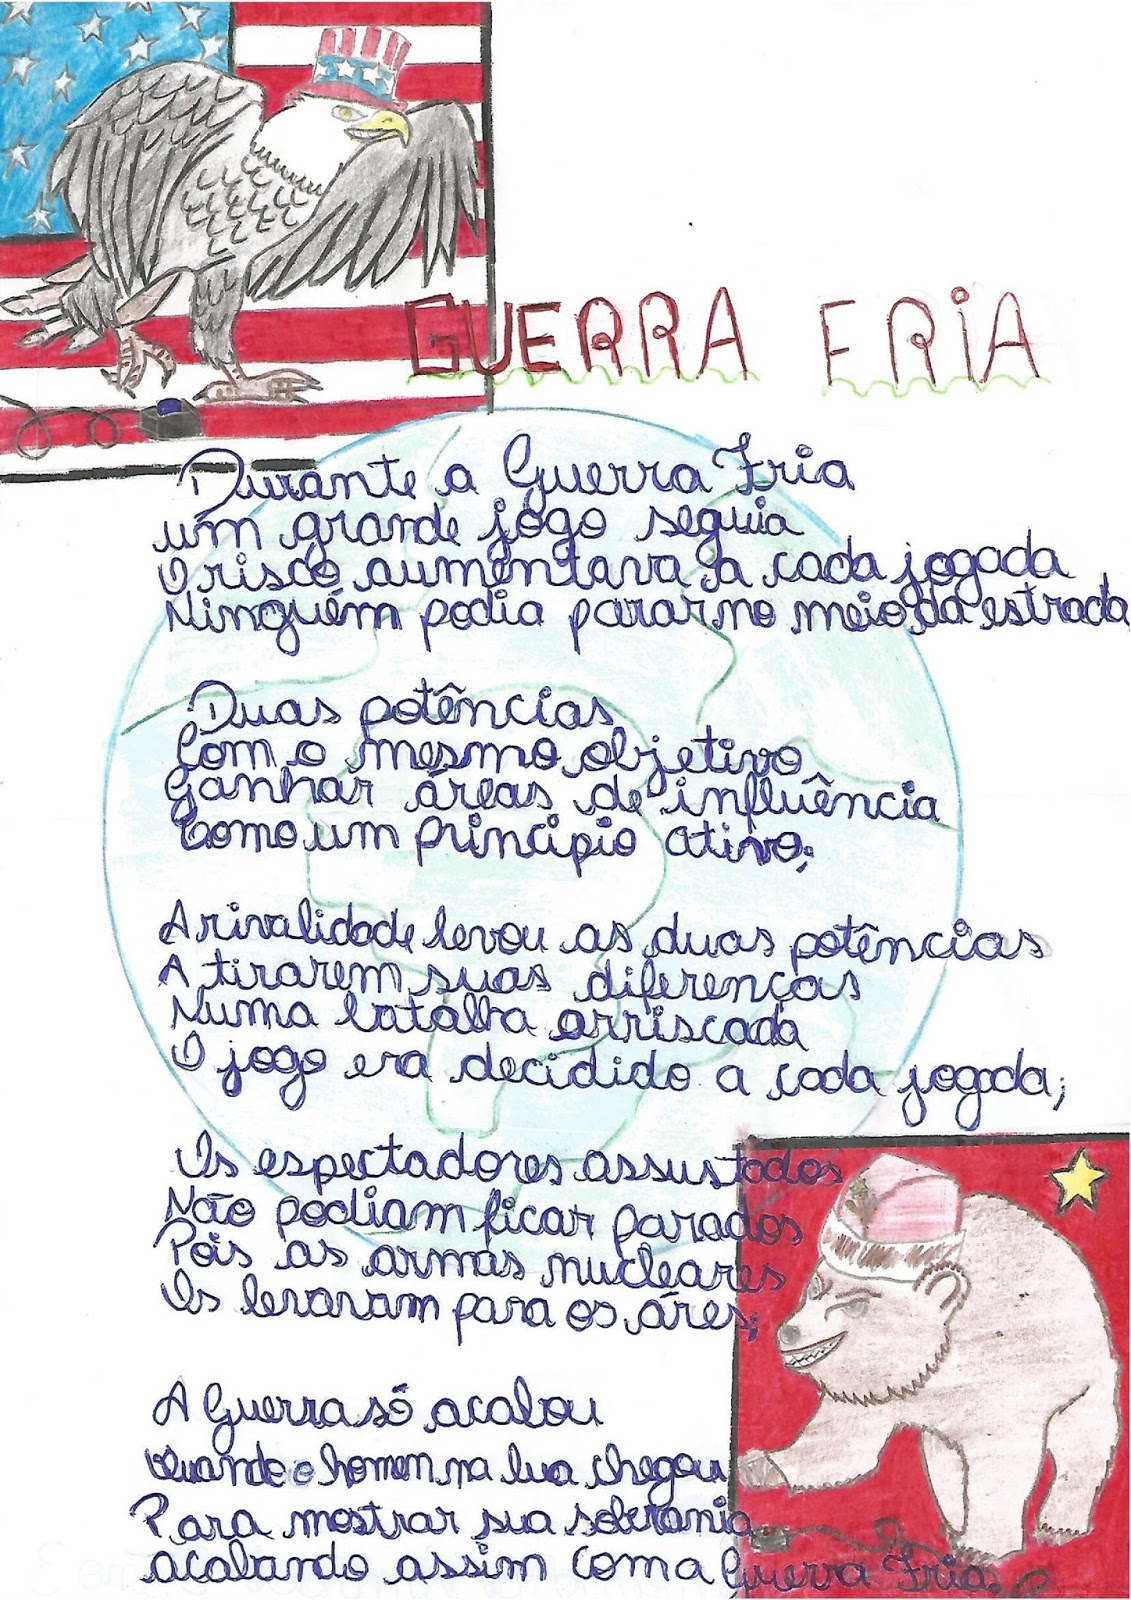 GUERRA FRiA
Durante a Guerra Fria
um grande jogo seguia
O risco aumentava a cada jogada
Ninguém podia parar no meio da estrada
Duas potências
Com o mesmo objetivo
Ganhar áreas de influência
Como um principio ativo;
A rivalidade levou as duas potências
A tirarem suas diferenças
Numa batalha arriscada
O jogo era decidido a cada jogada;
Os espectadores assustados
Não podiam ficar parados
Pois as armas nucleares
Os levavam para os áres;
A Guerra só acabou
Quando o homem na lua chegou
Para mostrar sua soberania
acabando assim com a Guerra Fria.